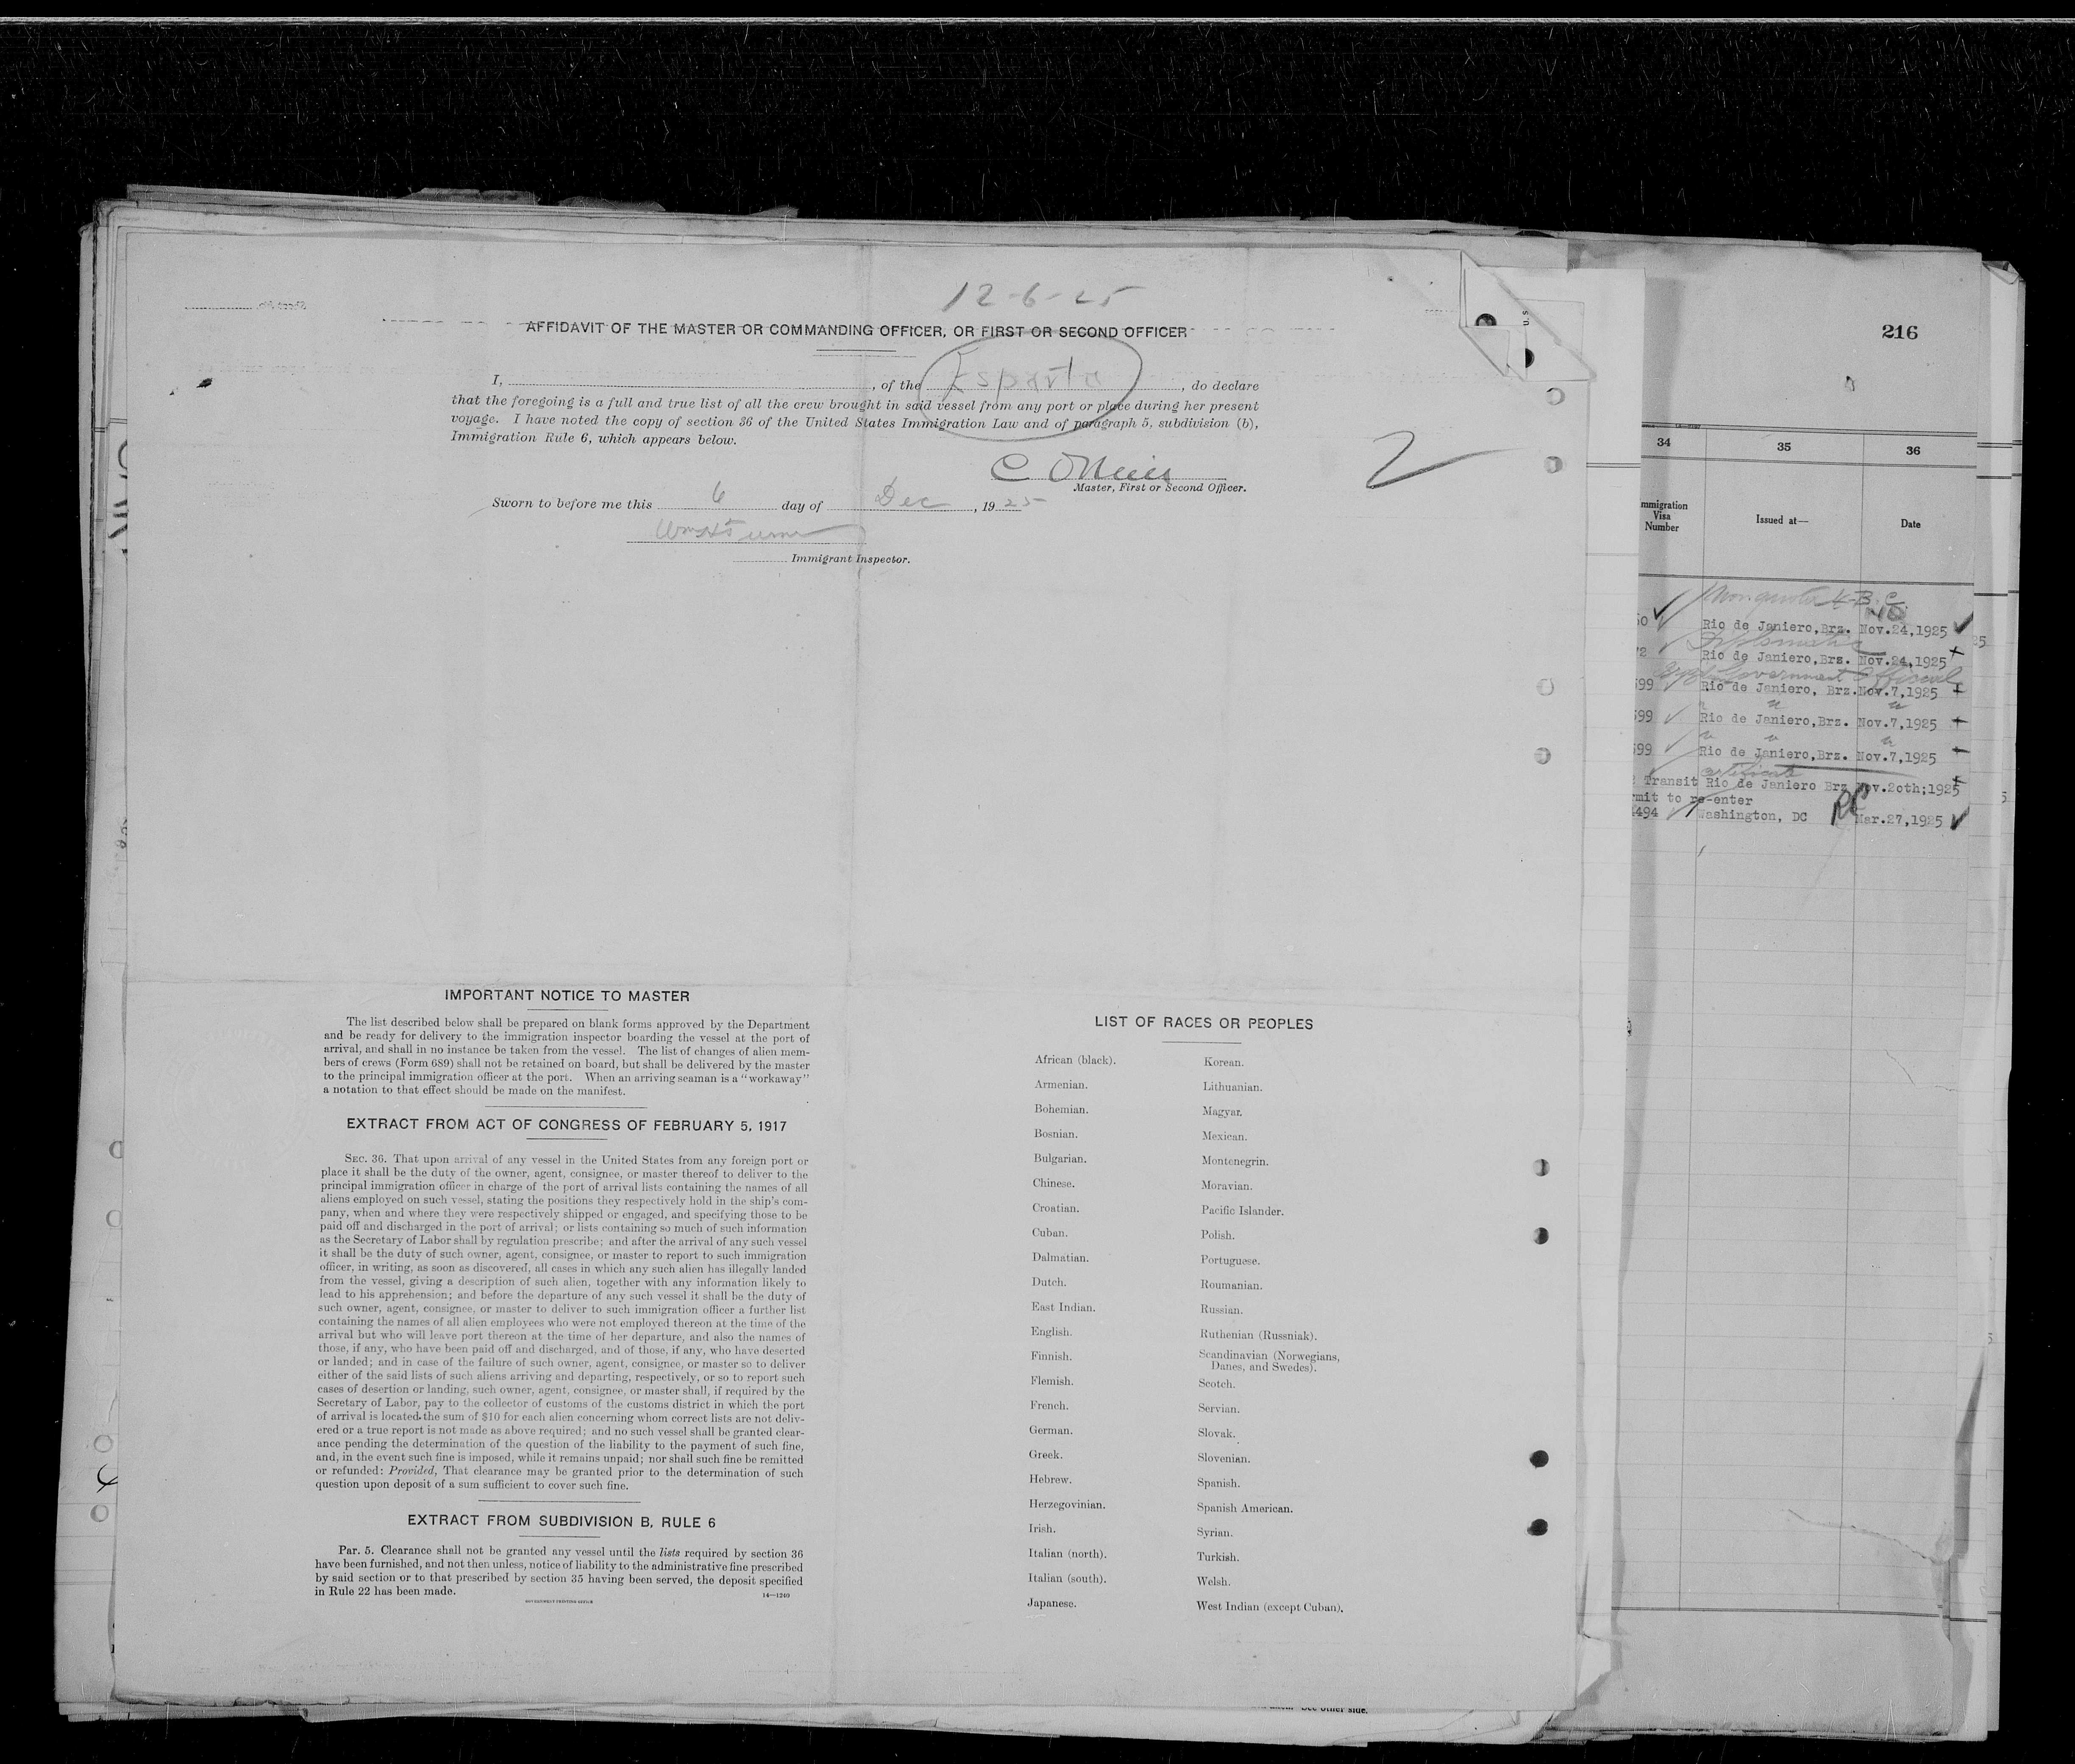 12-6-25
AFFIDAVIT OF THE MASTER OR COMMANDING OFFICER, OR FIRST OR SECOND OFFICER
I, , of the Esparta , do declare
that the foregoing is a full and true list of all the crew brought in said vessel from any port or place during her present
voyage. I have noted the copy of section 36 of the United States Immigration Law and of paragraph 5, subdivision (b),
Immigration Rule 6, which appears below.
2
C
Master, First or Second Officer.
Sworn to before me this 6 day of Dec , 1925
Immigrant Inspector.
IMPORTANT NOTICE TO MASTER
The list described below shall be prepared on blank forms approved by the Department
and be ready for delivery to the immigration inspector boarding the vessel at the port of
arrival, and shall in no instance be taken from the vessel. The list of changes of alien mem-
bers of crews (Form 689) shall not be retained on board, but shall be delivered by the master
to the principal immigration officer at the port. When an arriving seaman is a "workaway"
a notation to that effect should be made on the manifest.
EXTRACT FROM ACT OF CONGRESS OF FEBRUARY 5, 1917
SEC. 36. That upon arrival of any vessel in the United States from any foreign port or
place it shall be the duty of the owner, agent, consignee, or master thereof to deliver to the
principal immigration officer in charge of the port of arrival lists containing the names of all
aliens employed on such vessel, stating the positions they respectively hold in the ship's com-
pany, when and where they were respectively shipped or engaged, and specifying those to be
paid off and discharged in the port of arrival; or lists containing so much of such information
as the Secretary of Labor shall by regulation prescribe; and after the arrival of any such vessel
it shall be the duty of such owner, agent, consignee, or master to report to such immigration
officer, in writing, as soon as discovered, all cases in which any such alien has illegally landed
from the vessel, giving a description of such alien, together with any information likely to
lead to his apprehension; and before the departure of any such vessel it shall be the duty of
such owner, agent, consignee, or master to deliver to such immigration officer a further list
containing the names of all alien employees who were not employed thereon at the time of the
arrival but who will leave port thereon at the time of her departure, and also the names of
those, if any, who have been paid off and discharged, and of those, if any, who have deserted
or landed; and in case of the failure of such owner, agent, consignee, or master so to deliver
either of the said lists of such aliens arriving and departing, respectively, or so to report such
cases of desertion or landing, such owner, agent, consignee, or master shall, if required by the
Secretary of Labor, pay to the collector of customs of the customs district in which the port
of arrival is located the sum of $10 for each alien concerning whom correct lists are not deliv-
ered or a true report is not made as above required; and no such vessel shall be granted clear-
ance pending the determination of the question of the liability to the payment of such fine,
and, in the event such fine is imposed, while it remains unpaid; nor shall such fine be remitted
or refunded: Provided, That clearance may be granted prior to the determination of such
question upon deposit of a sum sufficient to cover such fine.
EXTRACT FROM SUBDIVISION B, RULE 6
Par. 5. Clearance shall not be granted any vessel until the lists required by section 36
have been furnished, and not then unless, notice of liability to the administrative fine prescribed
by said section or to that prescribed by section 35 having been served, the deposit specified
in Rule 22 has been made.
14—1240
GOVERNMENT PRINTING OFFICE
LIST OF RACES OR PEOPLES
African (black).
Armenian.
Bohemian.
Bosnian.
Bulgarian.
Chinese.
Croatian.
Cuban.
Dalmatian.
Dutch.
East Indian.
English.
Finnish.
Flemish.
French.
German.
Greek.
Hebrew.
Herzegovinian.
Irish.
Italian (north).
Italian (south).
Japanese.
Korean.
Lithuanian.
Magyar.
Mexican.
Montenegrin.
Moravian.
Pacific Islander.
Polish.
Portuguese.
Roumanian.
Russian.
Ruthenian (Russniak).
Scandinavian (Norwegians,
Danes, and Swedes).
Scotch.
Servian.
Slovak.
Slovenian.
Spanish.
Spanish American.
Syrian.
Turkish.
Welsh.
West Indian (except Cuban).
See other side.
U. S.
216
34 35 36
Visa
Number
Issued at—
Date
Rio de Janiero,Brz. Nov.24,1925
Diplomatic
Rio de Janiero,Brz. Nov.24,1925
Government Official
Rio de Janiero, Brz.Nov.7,1925
Rio de Janiero,Brz. Nov.7,1925
Rio de Janiero,Brz. Nov.7,1925
certificate
Transit Rio de Janiero Brz Nov.2oth;1925
to re-enter
Washington, DC Mar.27,1925